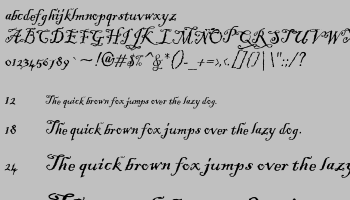 abcdefghijklmnopqrstuvwxyz
ABCDEFGHIJKLMNOPQRSTUVW
0123456789`~!@#$%^&*()-_+=>,<.[]{}|\":;/?
12 The quick brown fox jumps over the lazy dog.
18 The quick brown fox jumps over the lazy dog.
24 The quick brown fox jumps over the lazy